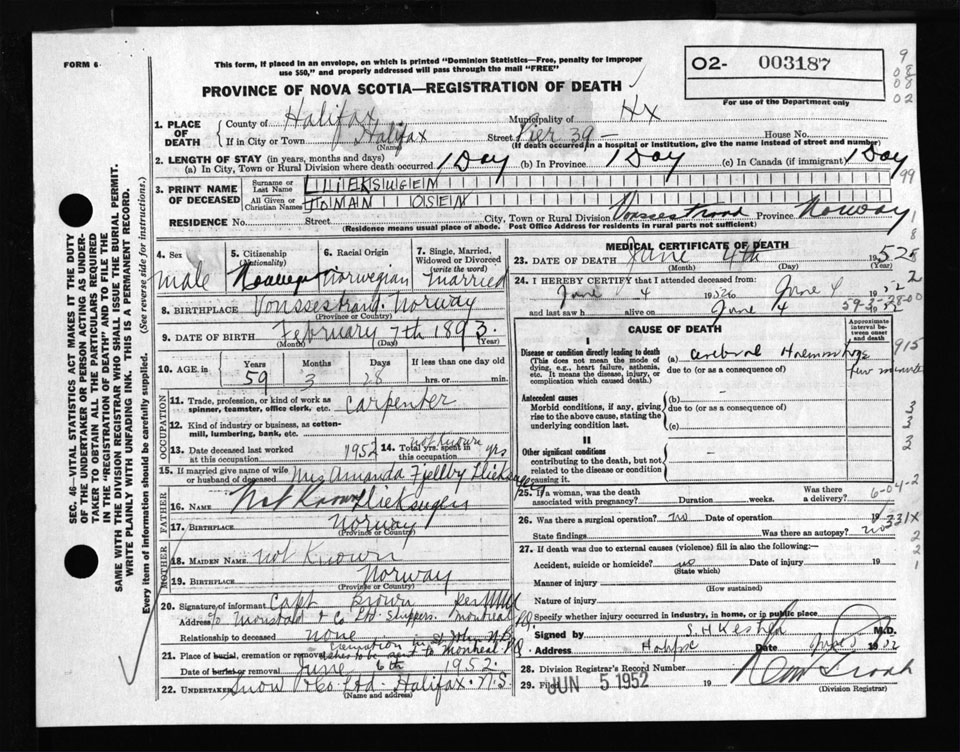 FORM 6
This form, if placed in an envelope, on which is printed "Dominion Statistics—Free, penalty for improper
use $50," and properly addressed will pass through the mail "FREE"
O2- 003187
For use of the Department only
PROVINCE OF NOVA SCOTIA—REGISTRATION OF DEATH
1. PLACE OF DEATH
County of Halifax Municipality of Hx
If in City or Town Halifax Street Pier 39 — House No.
(Name) (If death occurred in a hospital or institution, give the name instead of street and number)
2. LENGTH OF STAY (in years, months and days)
(a) In City, Town or Rural Division where death occurred 1 Day (b) In Province 1 Day (c) In Canada (if immigrant) 1 Day
3. PRINT NAME OF DECEASED
Surname or Last Name
All Given or Christian Names TOMAN OSEN
RESIDENCE No. Street City, Town or Rural Division Vonssestrand Province Norway
(Residence means usual place of abode. Post Office Address for residents in rural parts not sufficient)
4. Sex
Male
5. Citizenship
(Nationality)
6. Racial Origin
Norwegian
7. Single, Married, Widowed or Divorced
(write the word)
Married
8. BIRTHPLACE Vonssestrand Norway
(Province or Country)
9. DATE OF BIRTH February 7th 1893.
(Month) (Day) (Year)
10. AGE in Years Months Days If less than one day old
59 3 28 hrs. or min.
OCCUPATION
11. Trade, profession, or kind of work as
spinner, teamster, office clerk, etc. Carpenter
12. Kind of industry or business, as cotton-
mill, lumbering, bank, etc.
13. Date deceased last worked
at this occupation 1952
14. Total yrs. spent in
this occupation not known yrs
15. If married give name of wife
or husband of deceased Mrs Amanda Fjellby
FATHER
16. NAME Not Known
17. BIRTHPLACE Norway
(Province or Country)
MOTHER
18. MAIDEN NAME not Known
19. BIRTHPLACE Norway
(Province or Country)
20. Signature of informant Capt Brown
Address Co Ltd. Shippers. Montreal P.Q.
Relationship to deceased none
Cremation in St John N.B.
21. Place of burial, cremation or removal Ashes to be sent to Montreal P.Q
Date of burial or removal June 6th 1952.
22. UNDERTAKER Snow & Co Ltd. Halifax. N.S
(Name and address)
MEDICAL CERTIFICATE OF DEATH
23. DATE OF DEATH June 4th 1952
(Month) (Day) (Year)
24. I HEREBY CERTIFY that I attended deceased from:
June 4 1952 to June 4 1952
and last saw h alive on June 4
59-3-28-00
CAUSE OF DEATH
Approximate interval between onset and death
I
Disease or condition directly leading to death
(This does not mean the mode of
dying, e.g., heart failure, asthenia,
etc. It means the disease, injury, or
complication which caused death.)
(a) Cerebral Haemorrhage few minutes
due to (or as a consequence of)
Antecedent causes
Morbid conditions, if any, giving
rise to the above cause, stating the
underlying condition last.
(b) —
due to (or as a consequence of)
(c)
II
Other significant conditions
contributing to the death, but not
related to the disease or condition
causing it.
25. If a woman, was the death
associated with pregnancy? Duration weeks. Was there a delivery?
6-04-2
26. Was there a surgical operation? no Date of operation 19
331X
State findings Was there an autopsy? no
27. If death was due to external causes (violence) fill in also the following:—
Accident, suicide or homicide? no Date of injury 19
(State which)
Manner of injury
(How sustained)
Nature of injury
Specify whether injury occurred in industry, in home, or in public place
Signed by M.D.
Address Halifax Date June
28. Division Registrar's Record Number
29. Filed JUN 5 1952 19
(Division Registrar)
SEC. 46—VITAL STATISTICS ACT MAKES IT THE DUTY
OF THE UNDERTAKER OR PERSON ACTING AS UNDER-
TAKER TO OBTAIN ALL THE PARTICULARS REQUIRED
IN THE "REGISTRATION OF DEATH" AND TO FILE THE
SAME WITH THE DIVISION REGISTRAR WHO SHALL ISSUE THE BURIAL PERMIT.
WRITE PLAINLY WITH UNFADING INK. THIS IS A PERMANENT RECORD.
Every item of information should be carefully supplied. (See reverse side for instructions.)